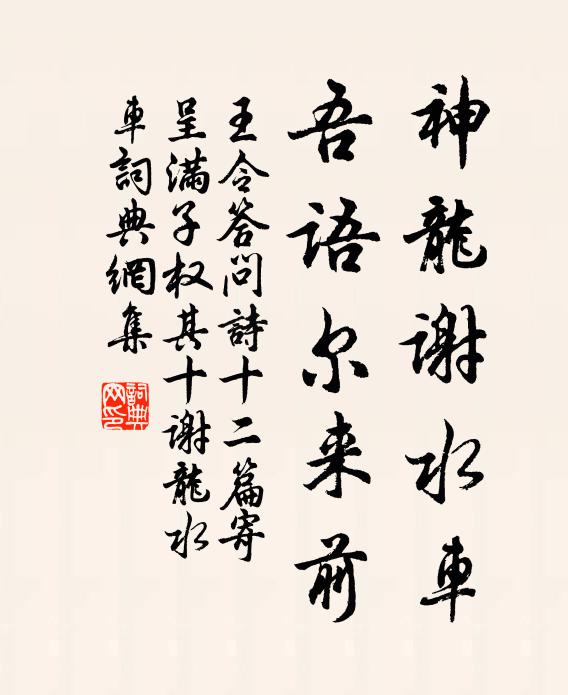 神龍谢水車
吾语尔来前
王令答问詩十二篇寄
呈滿子权其十谢龍水
車詞典網集
詞典
网印